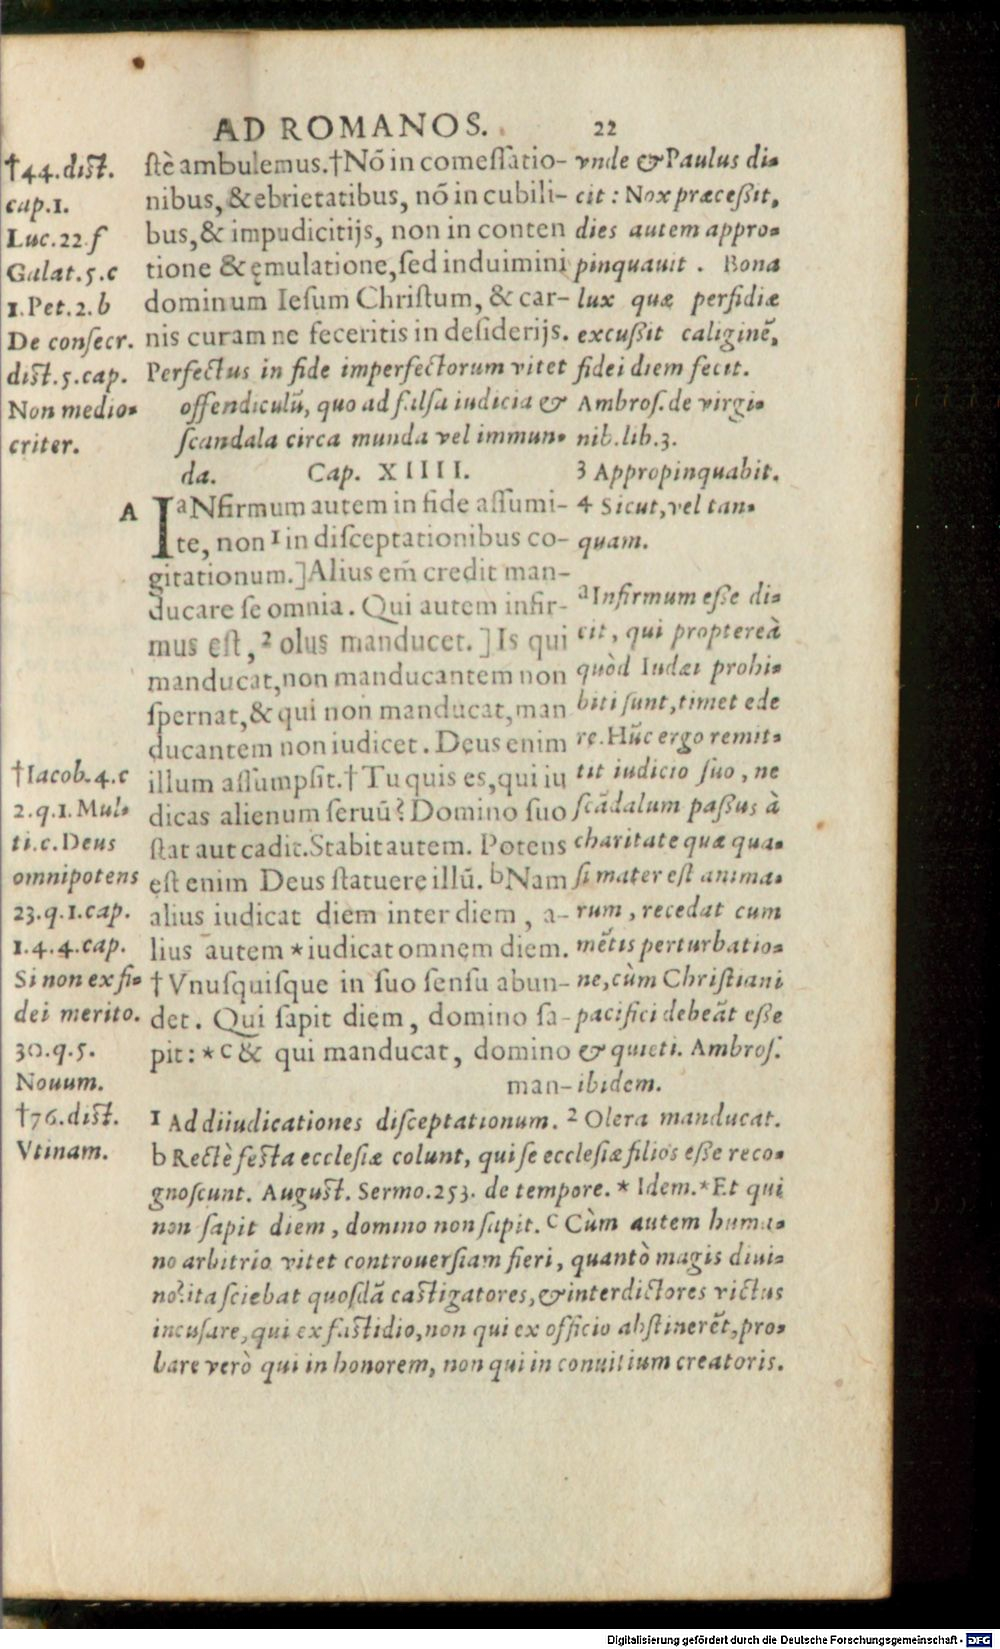 AD ROMANOS. 22
†44.dist.
cap.1.
Luc.22 f
Galat.5.c
1.Pet.2.b
De consecr.
dist.5.cap.
Non medio-
criter.
stè ambulemus.†Nō in comessatio-
nibus, & ebrietatibus, nō in cubili-
bus, & impudicitijs, non in conten
tione & ęmulatione, sed induimini
dominum Iesum Christum, & car-
nis curam ne feceritis in desiderijs.
Perfectus in fide imperfectorum vitet
offendiculū, quo ad falsa iudicia &
scandala circa munda vel immun-
da. Cap. XIIII.
A
IaNfirmum autem in fide assumi-
te, non 1 in disceptationibus co-
gitationum.]Alius em̄ credit man-
ducare se omnia. Qui autem infir-
mus est, 2 olus manducet.]Is qui
manducat, non manducantem non
spernat, & qui non manducat, man
ducantem non iudicet. Deus enim
illum assumpsit.†Tu quis es, qui iu
dicas alienum seruū? Domino suo
stat aut cadit. Stabit autem. Potens
est enim Deus statuere illū. bNam
alius iudicat diem inter diem, a-
lius autem *iudicat omnem diem.
†Vnusquisque in suo sensu abun-
det. Qui sapit diem, domino sa-
pit: *c & qui manducat, domino
man-
†Iacob.4.c
2.q.1.Mul-
ti.c.Deus
omnipotens
23.q.1.cap.
1.4.4.cap.
Si non ex fi-
dei merito.
30.q.5.
Nouum.
†76.dist.
Vtinam.
vnde & Paulus di-
cit: Nox præceßit,
dies autem appro-
pinquauit. Bona
lux quæ perfidiæ
excußit caliginē,
fidei diem fecit.
Ambros. de virgi-
nib.lib.3.
3 Appropinquabit.
4 Sicut, vel tan-
quam.
aInfirmum eße di-
cit, qui proptereà
quòd Iudæi prohi-
biti sunt, timet ede
rę. Hūc ergo remit-
tit iudicio suo, ne
scādalum paßus à
charitate quæ qua-
si mater est anima-
rum, recedat cum
mētis perturbatio-
ne, cùm Christiani
pacifici debeāt eße
& quieti. Ambros.
ibidem.
1 Ad diiudicationes disceptationum. 2 Olera manducat.
b Rectè festa ecclesiæ colunt, qui se ecclesiæ filios eße reco-
gnoscunt. August. Sermo.253. de tempore. * Idem.*Et qui
non sapit diem, domino non sapit. c Cùm autem huma-
no arbitrio vitet controuersiam fieri, quantò magis diui-
no? ita sciebat quosdā castigatores, & interdictores victus
incusare, qui ex fastidio, non qui ex officio abstinerēt, pro-
bare verò qui in honorem, non qui in conuitium creatoris.
Digitalisierung gefördert durch die Deutsche Forschungsgemeinschaft - DFG